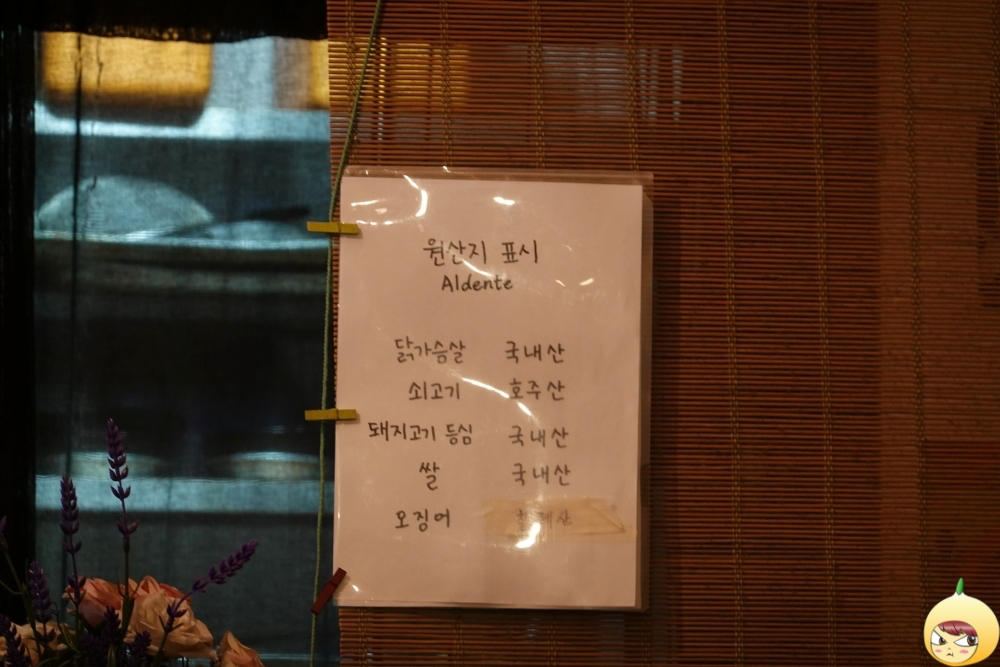 원산지 표시
Aldente
닭가슴살 국내산
쇠고기 호주산
돼지고기 등심 국내산
쌀 국내산
오징어